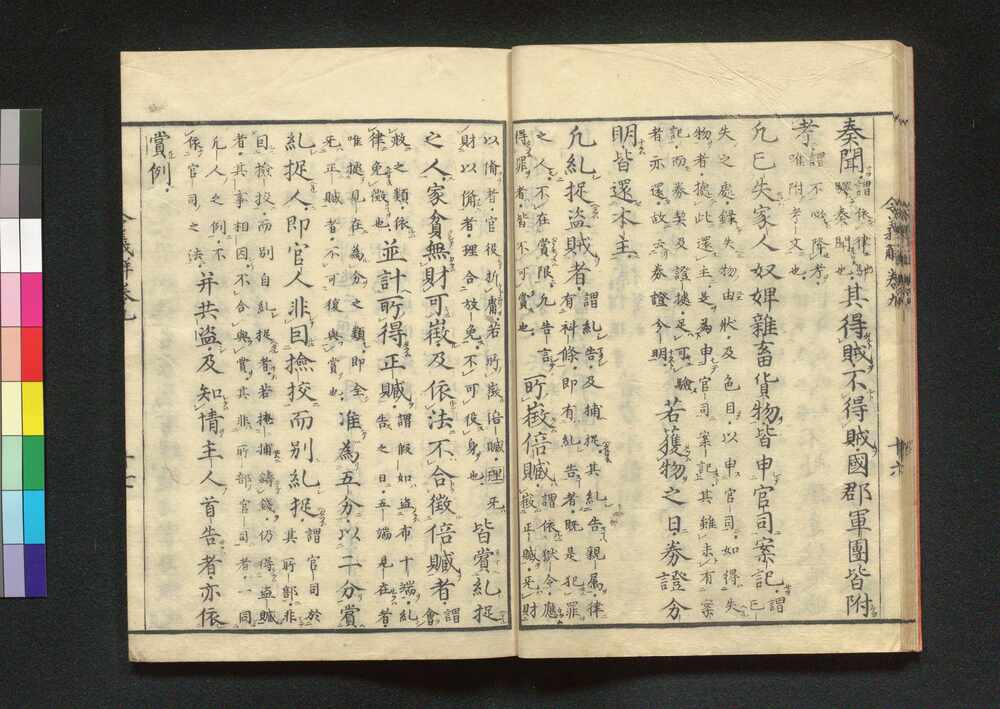 令義解卷九 十六
奏聞其得賊不得賊國郡軍團皆附
考謂不必降考
唯附考文也
凡亡失家人奴婢雜畜貨物皆申官司案記謂亡
失之處錄失物由狀及色目以申官司如得失
物者據此還主是為申官司案記其雖未有案
記而券契及證據足可驗
者亦還故云券證分明若獲物之日券證分
明皆還本主
凡糺捉盜賊者謂糺告及捕捉其糺告親屬律
有科條即有糺告者既是犯罪
之人不在賞限凡告言
得罪者皆不可賞也所徵倍贓謂依獄令應
徵正贓无財
以備者官役折庸若所徵倍贓理无
財以備者理合放免不可役身也皆賞糺捉
之人家貧無財可徵及依法不合徵倍贓者謂會
赦之類依
律免徵也並計所得正贓謂假如盜布十端糺
告之日五端見在者
唯據見在為分之類即全
无正贓者不可復與賞也准為五分以二分賞
糺捉人即官人非因撿挍而別糺捉謂官司於
其所部非
因撿挍而別自糺捉者若掩捕鑄錢仍得盜贓
者其事相因不合與賞其非所部官司者一同
凡人之例不
依官司之法并共盜及知情主人首告者亦依
賞例